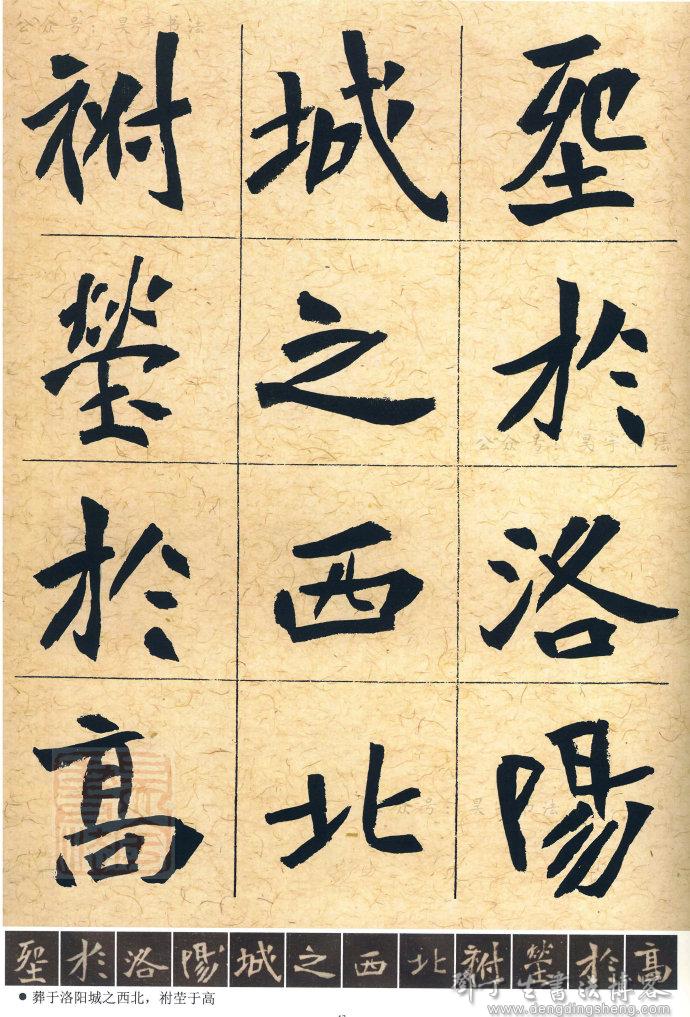 公众号：昊宇书法
塟於洛陽
城之西北
祔塋於高
公众号：昊宇书法
公众号：昊宇书法
塟於洛陽城之西北祔塋於高
● 葬于洛阳城之西北，祔茔于高
邓丁生书法博客
www.dengdingsheng.com